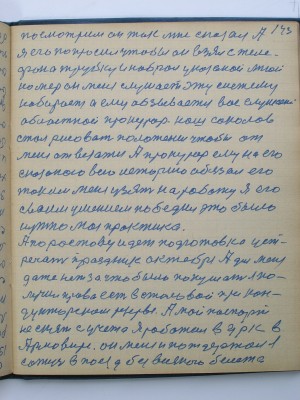 посмотрим он так мне сказал А 143
я его попросил чтобы он взял с теле-
фона трубку и набрал указаной мной
номер он меня слушает эту систему
набирает а ему отзывается вас слушает
областной прокурор наш соколов
стал рисоват положения чтобы от
меня отвязатся А прокурор ему на его
сказаного всю историю обязал его
таким меня узять на работу Я его
своим умением победил это было
нужно моя практика.
А по ростову идет подготовка уст-
речать праздник октября А для меня
даже нет за что было покушать я по-
лучил права сест в столовой при кон-
дукторском резерве. А мой паспорт
не снят с учета Я работал в ОРК в
Армавире. он меня поддержал я
сажус в поезд без всякого билета